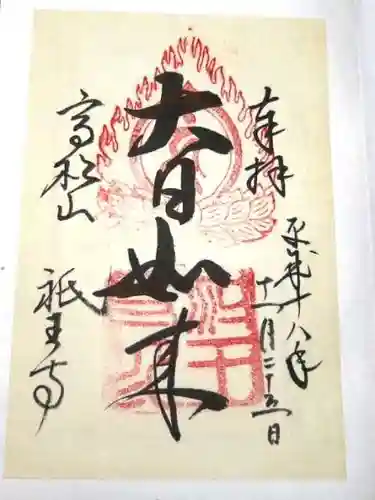 奉拝
平成十八年
十一月二十五日
大日如来
高松山
祇王寺